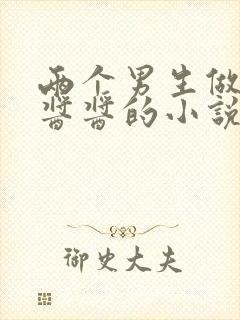 两个男生做
酱酱的小说
御史大夫